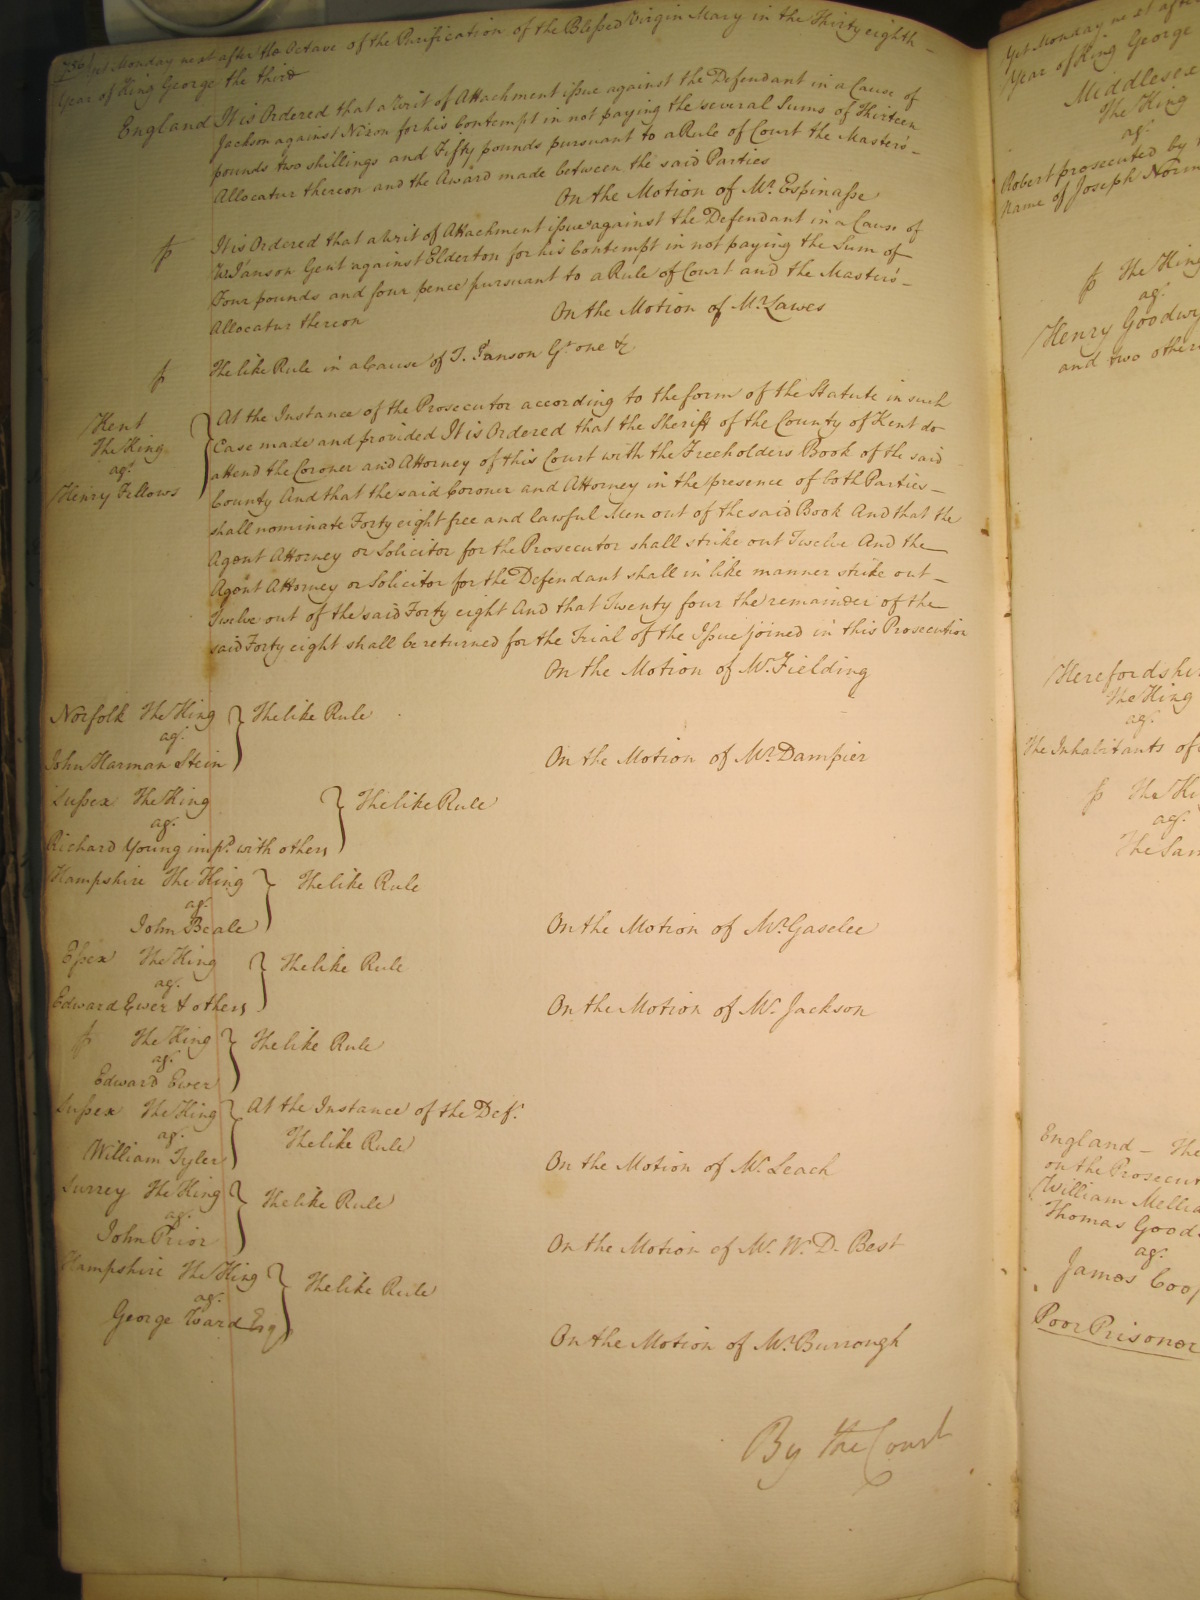 Yet Monday next after the Octave of the Purification of the Blessed Virgin Mary in the Thirty eighth
Year of King George the third
England It is Ordered that a Writ of Attachment issue against the Defendant in a Cause of
Jackson against Nixon for his Contempt in not paying the several Sums of Thirteen
pounds two shillings and Fifty pounds pursuant to a Rule of Court the Masters
Allocatur thereon and the Award made between the said Parties
On the Motion of Mr. Espinasse
It is Ordered that a Writ of Attachment issue against the Defendant in a Cause of
I'anson Gent against Elderton for his Contempt in not paying the Sum of
Four pounds and four pence pursuant to a Rule of Court and the Masters
Allocatur thereon
On the Motion of Mr. Lawes
The like Rule in a Cause of T. I'anson Gt. one &c
Kent
The King
agt.
Henry Fellows
At the Instance of the Prosecutor according to the form of the Statute in such
Case made and provided It is Ordered that the Sheriff of the County of Kent do
attend the Coroner and Attorney of this Court with the Freeholders Book of the said
County And that the said Coroner and Attorney in the presence of both Parties
shall nominate Forty eight free and lawful Men out of the said Book And that the
Agent Attorney or Solicitor for the Prosecutor shall strike out Twelve And the
Agent Attorney or Solicitor for the Defendant shall in like manner strike out
Twelve out of the said Forty eight And that Twenty four the remainder of the
said Forty eight shall be returned for the Trial of the Issue joined in this Prosecution
On the Motion of Mr. Fielding
Norfolk The King
agt.
John Harman Stein
The like Rule
On the Motion of Mr. Dampier
Sussex The King
agt.
Richard Young impd. with others
The like Rule
Hampshire The King
agt.
John Beale
The like Rule
On the Motion of Mr. Gaselee
Essex The King
agt.
Edward Ewer & others
The like Rule
On the Motion of Mr. Jackson
The King
agt.
Edward Ewer
The like Rule
Sussex The King
agt.
William Tyler
At the Instance of the Deft.
The like Rule
On the Motion of Mr. Leach
Surrey The King
agt.
John Prior
The like Rule
On the Motion of Mr. W. D. Best
Hampshire The King
agt.
George Ward Esq
The like Rule
On the Motion of Mr. Burrough
By the Court
Yet Monday next after
Year of King George
Middlesex
The King
agt.
Robert prosecuted by
Name of Joseph
The King
agt.
Henry
and two others
Herefordshire
The King
agt.
The Inhabitants of
The
agt.
The
England The
on the
William
Thomas
agt.
James
Poor Prisoner